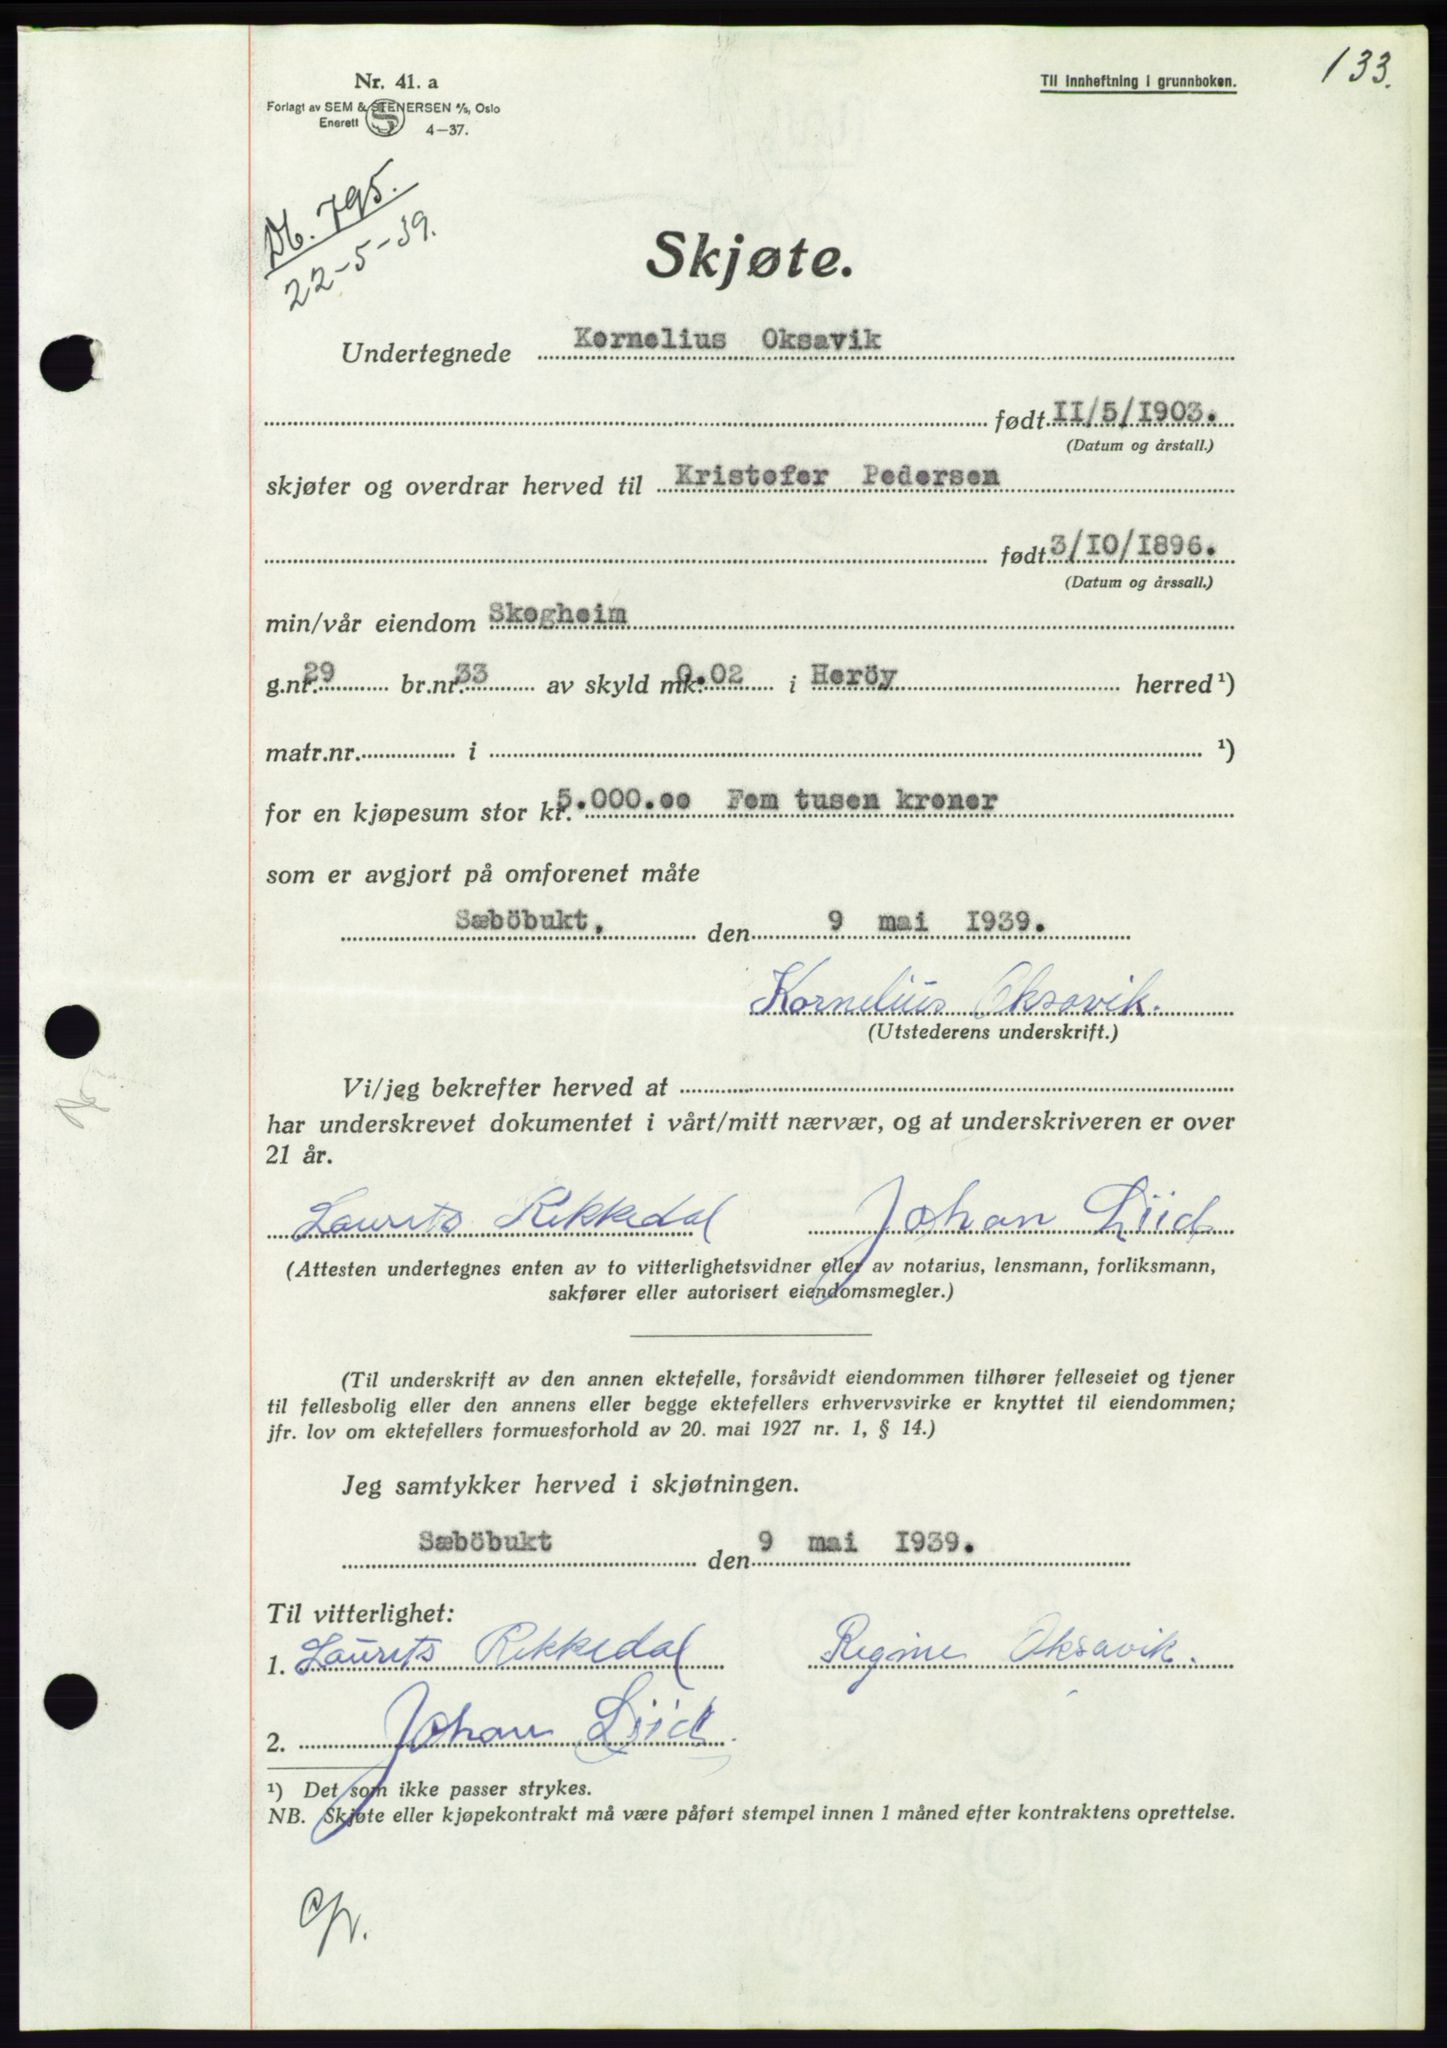 133.
Nr. 41. a
Til innheftning i grunnboken.
Forlagt av SEM & STENERSEN A/S, Oslo
Enerett
4—37.
Db. 795.
22-5-39.
Skjøte.
Undertegnede Kornelius Oksavik
født II/5/I903.
(Datum og årstall.)
skjøter og overdrar herved til Kristofer Pedersen
født 3/IO/I896.
(Datum og årssall.)
min/vår eiendom Skogheim
g.nr. 29 br.nr. 33 av skyld mk. 0.02 i Heröy herred ¹)
matr.nr. i ¹)
for en kjøpesum stor kr. 5.000.oo Fem tusen kroner
som er avgjort på omforenet måte
Sæböbukt. den 9 mai I939.
Kornelius Oksavik.
(Utstederens underskrift.)
Vi/jeg bekrefter herved at
har underskrevet dokumentet i vårt/mitt nærvær, og at underskriveren er over
21 år.
Laurits Rekkedal Johan Liid
(Attesten undertegnes enten av to vitterlighetsvidner eller av notarius, lensmann, forliksmann,
sakfører eller autorisert eiendomsmegler.)
(Til underskrift av den annen ektefelle, forsåvidt eiendommen tilhører felleseiet og tjener
til fellesbolig eller den annens eller begge ektefellers erhvervsvirke er knyttet til eiendommen;
jfr. lov om ektefellers formuesforhold av 20. mai 1927 nr. 1, § 14.)
Jeg samtykker herved i skjøtningen.
Sæböbukt den 9 mai I939.
Til vitterlighet:
1. Laurits Rekkedal Regine Oksavik.
2. Johan Liid.
¹) Det som ikke passer strykes.
NB. Skjøte eller kjøpekontrakt må være påført stempel innen 1 måned efter kontraktens oprettelse.